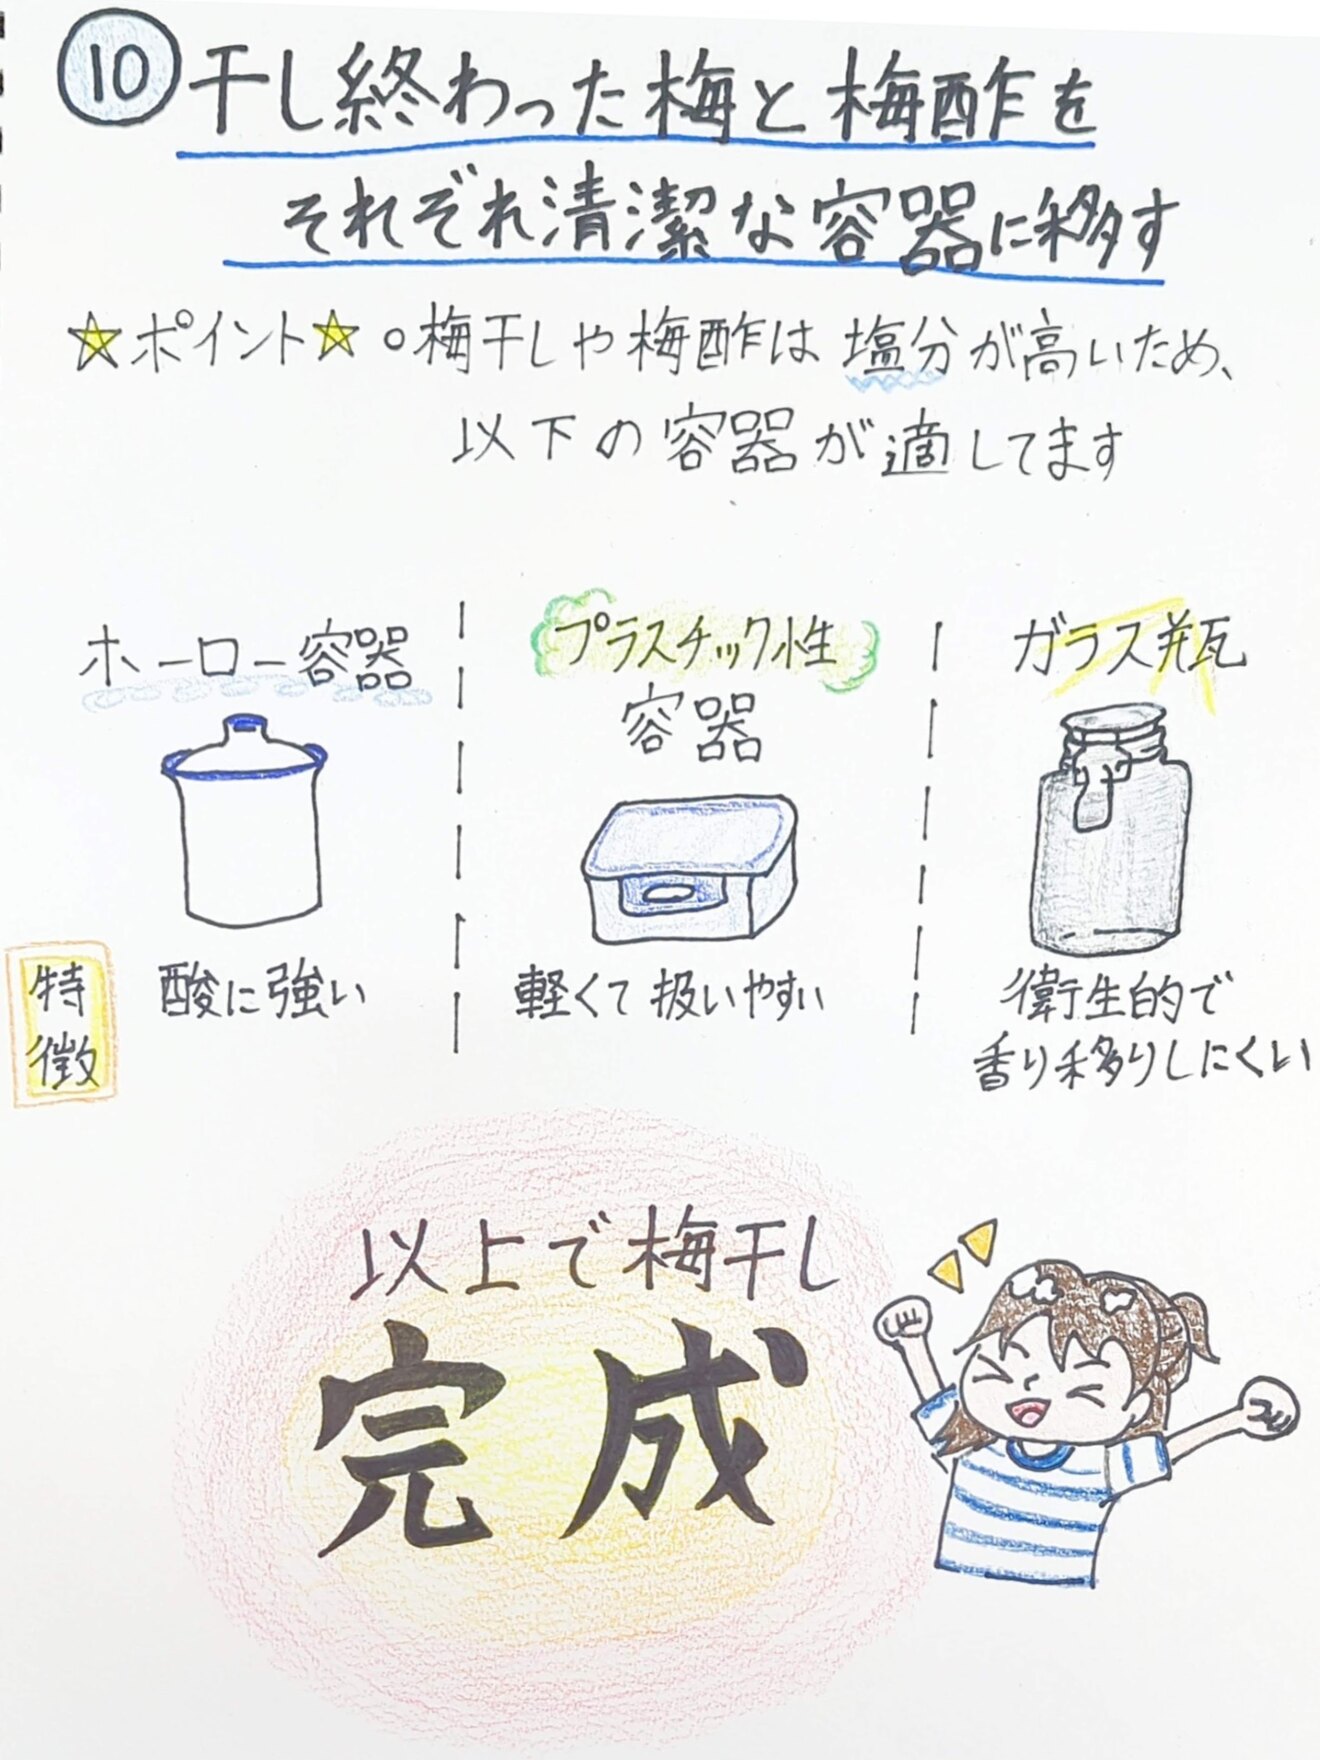 ⑩干し終わった梅と梅酢を
それぞれ清潔な容器に移す
☆ポイント☆ ○梅干しや梅酢は塩分が高いため、
以下の容器が適してます
ホーロー容器
プラスチック性
容器
ガラス瓶
特徴
酸に強い
軽くて扱いやすい
衛生的で
香り移りしにくい
以上で梅干し
完成